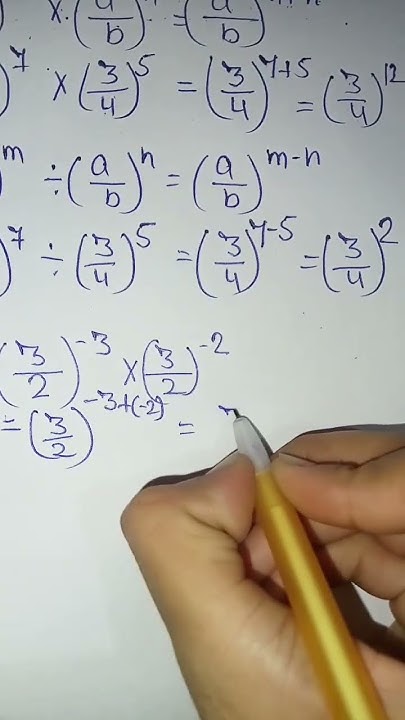 × (a/b) = (a/b)
)^7 × (3/4)^5 = (3/4)^{7+5} = (3/4)^12
)^m ÷ (a/b)^n = (a/b)^{m-n}
)^7 ÷ (3/4)^5 = (3/4)^{7-5} = (3/4)^2
(3/2)^{-3} × (3/2)^{-2}
= (3/2)^{-3+(-2)} =